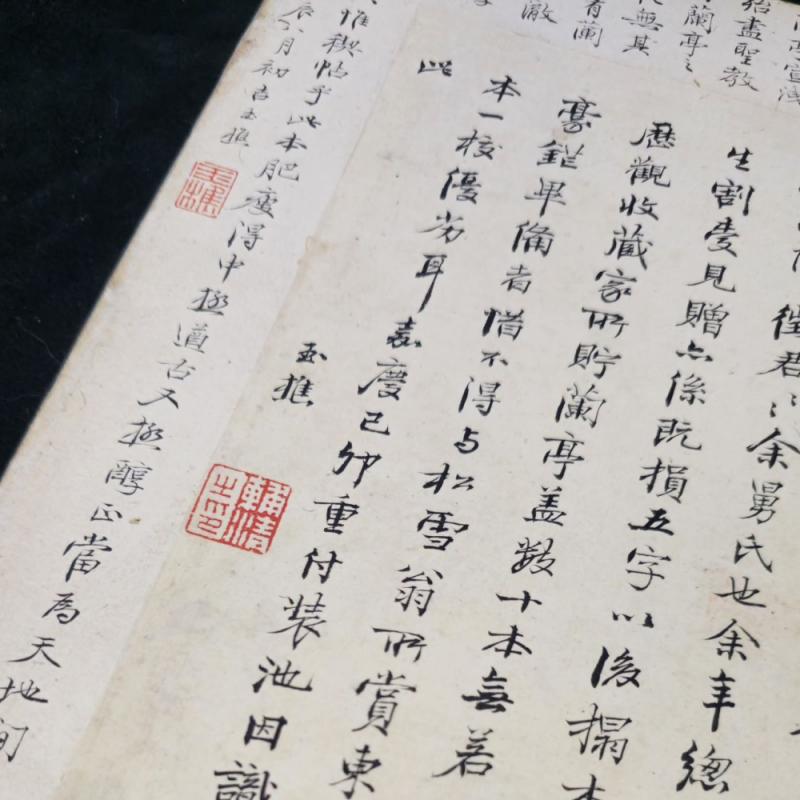 殆盡聖教
蘭亭之
無其
有蘭
澈
徵君〻余舅氏也余丰總
生割愛見贈亦係既損五字以後搨本
歷觀收藏家所貯蘭亭蓋數十本無若
豪鋩畢備者惜不得与松雪翁所賞東
本一校優劣耳嘉慶己卯重付裝池因識
此
玉樵
輔清之印
惟稧帖乎此本肥瘦得中極遒古又極醇正當為天地間
辰六月初吉玉樵
玉樵